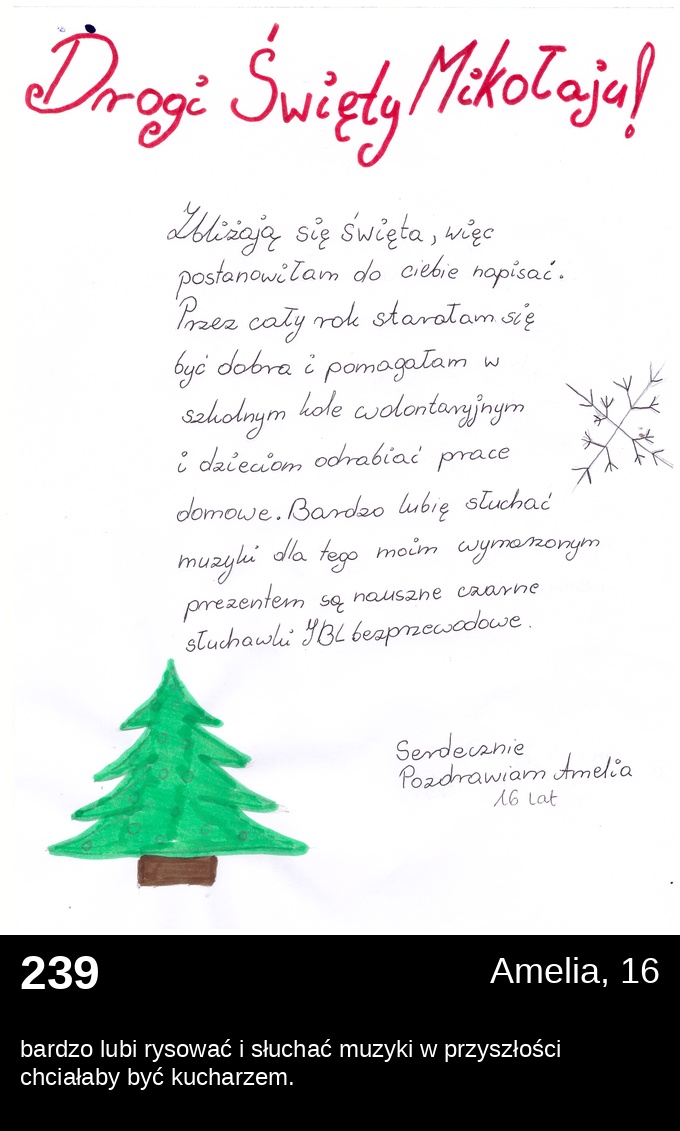 Drogi Święty Mikołaju!
Zbliżają się święta, więc
postanowiłam do ciebie napisać.
Przez cały rok starałam się
być dobra i pomagałam w
szkolnym kole wolontaryjnym
i dzieciom odrabiać prace
domowe. Bardzo lubię słuchać
muzyki dla tego moim wymarzonym
prezentem są nauszne czarne
słuchawki JBL bezprzewodowe.
Serdecznie
Pozdrawiam Amelia
16 lat
239
Amelia, 16
bardzo lubi rysować i słuchać muzyki w przyszłości
chciałaby być kucharzem.